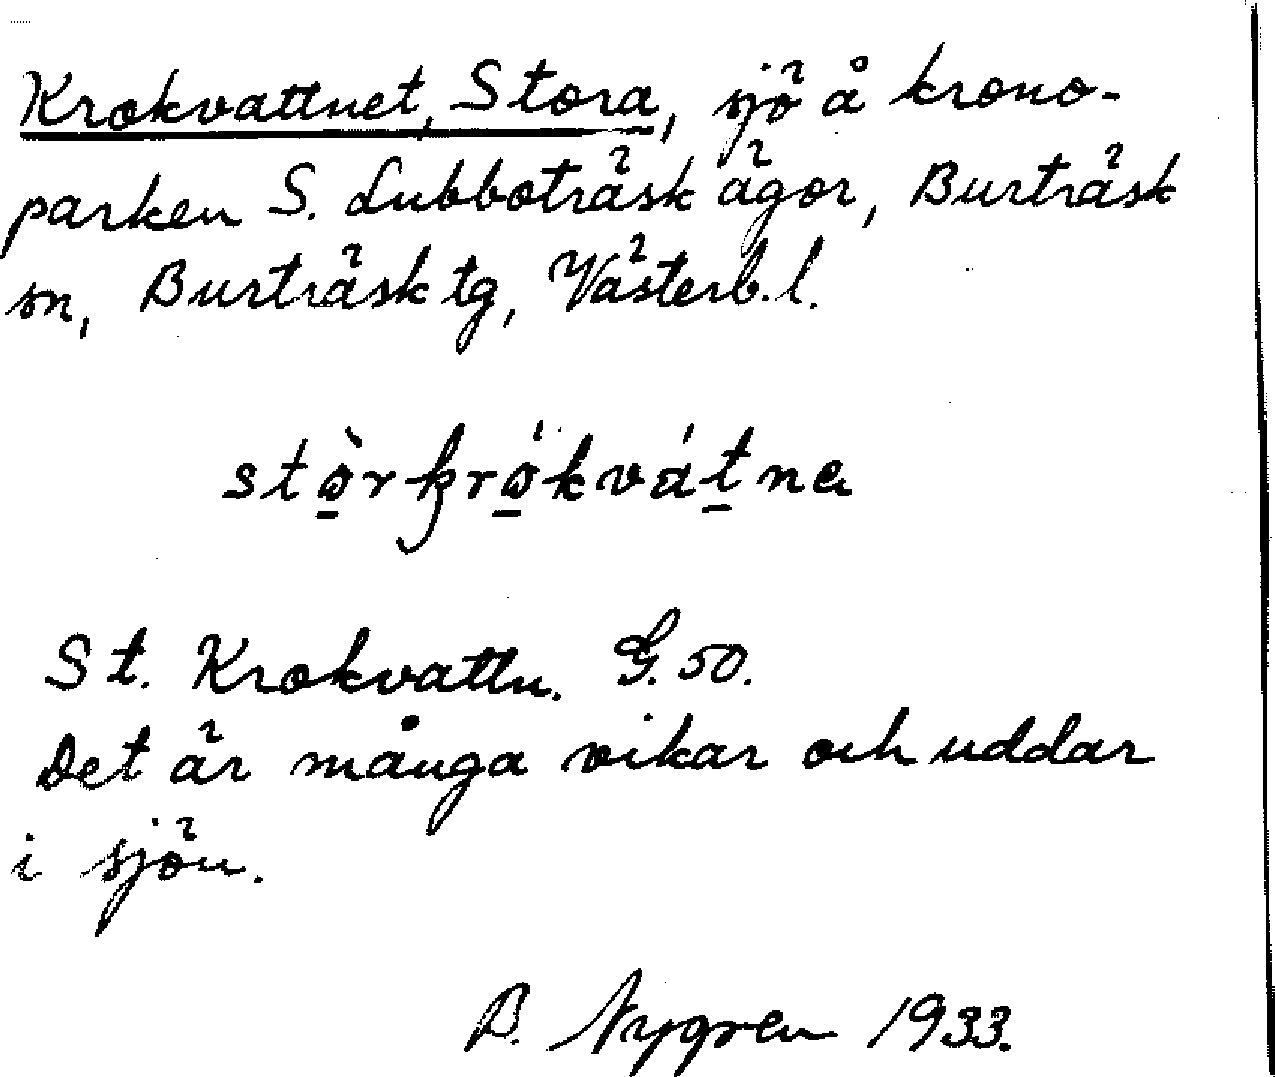 Krokvattnet, Stora, sjö å krono-
parken S. Lubboträsk ägor, Burträsk
sn, Burträsk tg, Västerb. l.
stò̠rkrö̠kvát̠na
St. Krokvattn. G. 50.
Det är många vikar och uddar
i sjön.
B. Nygren 1933.